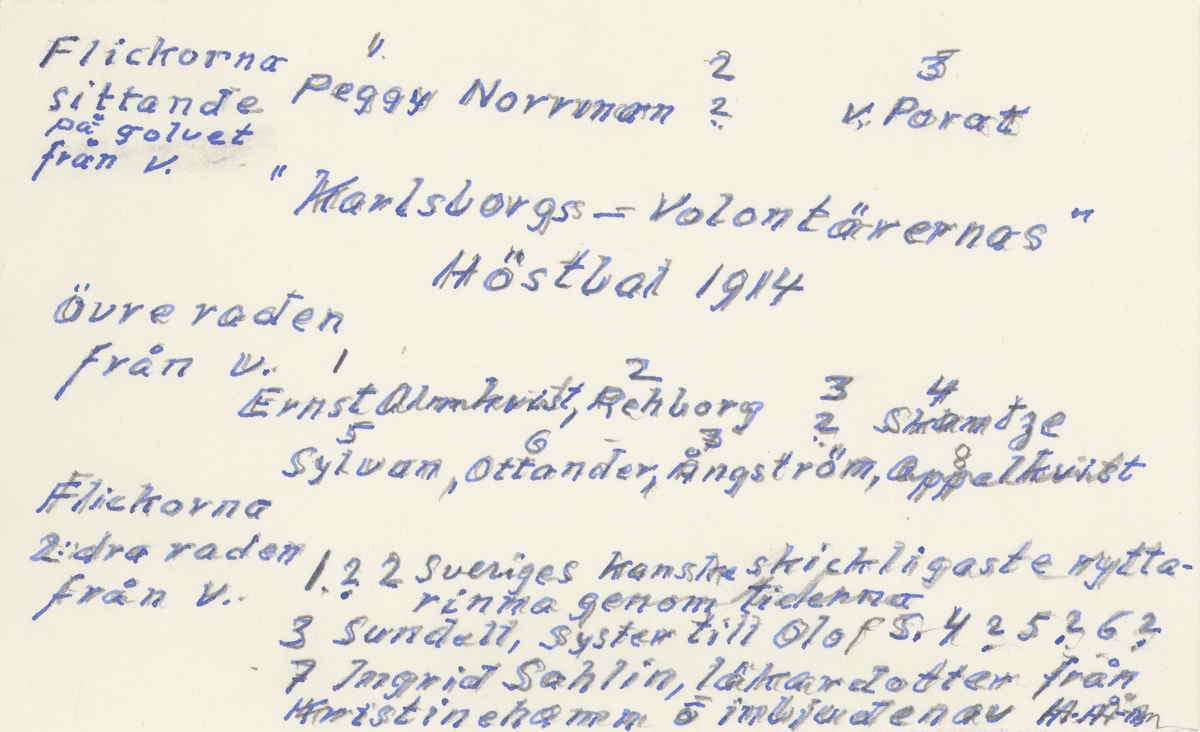 Flickorna
sittande
på golvet
från v.
1. 2 3
Peggy Norrman ? v. Porat
"Karlsborgs-Volontärernas"
Höstbal 1914
Övre raden
från v. 1 2 3 4
Ernst Almkvist, Rehborg ? Skamtze
5 6 7 8
Sylvan, Ottander, Ångström, Appelkvist
Flickorna
2:dra raden
från v.
1. ? 2 Sveriges kanske skickligaste rytta-
rinna genom tiderna
3 Sundell, syster till Olof S. 4 ? 5 ? 6 ?
7 Ingrid Sahlin, läkardotter från
Kristinehamn o inbjuden av